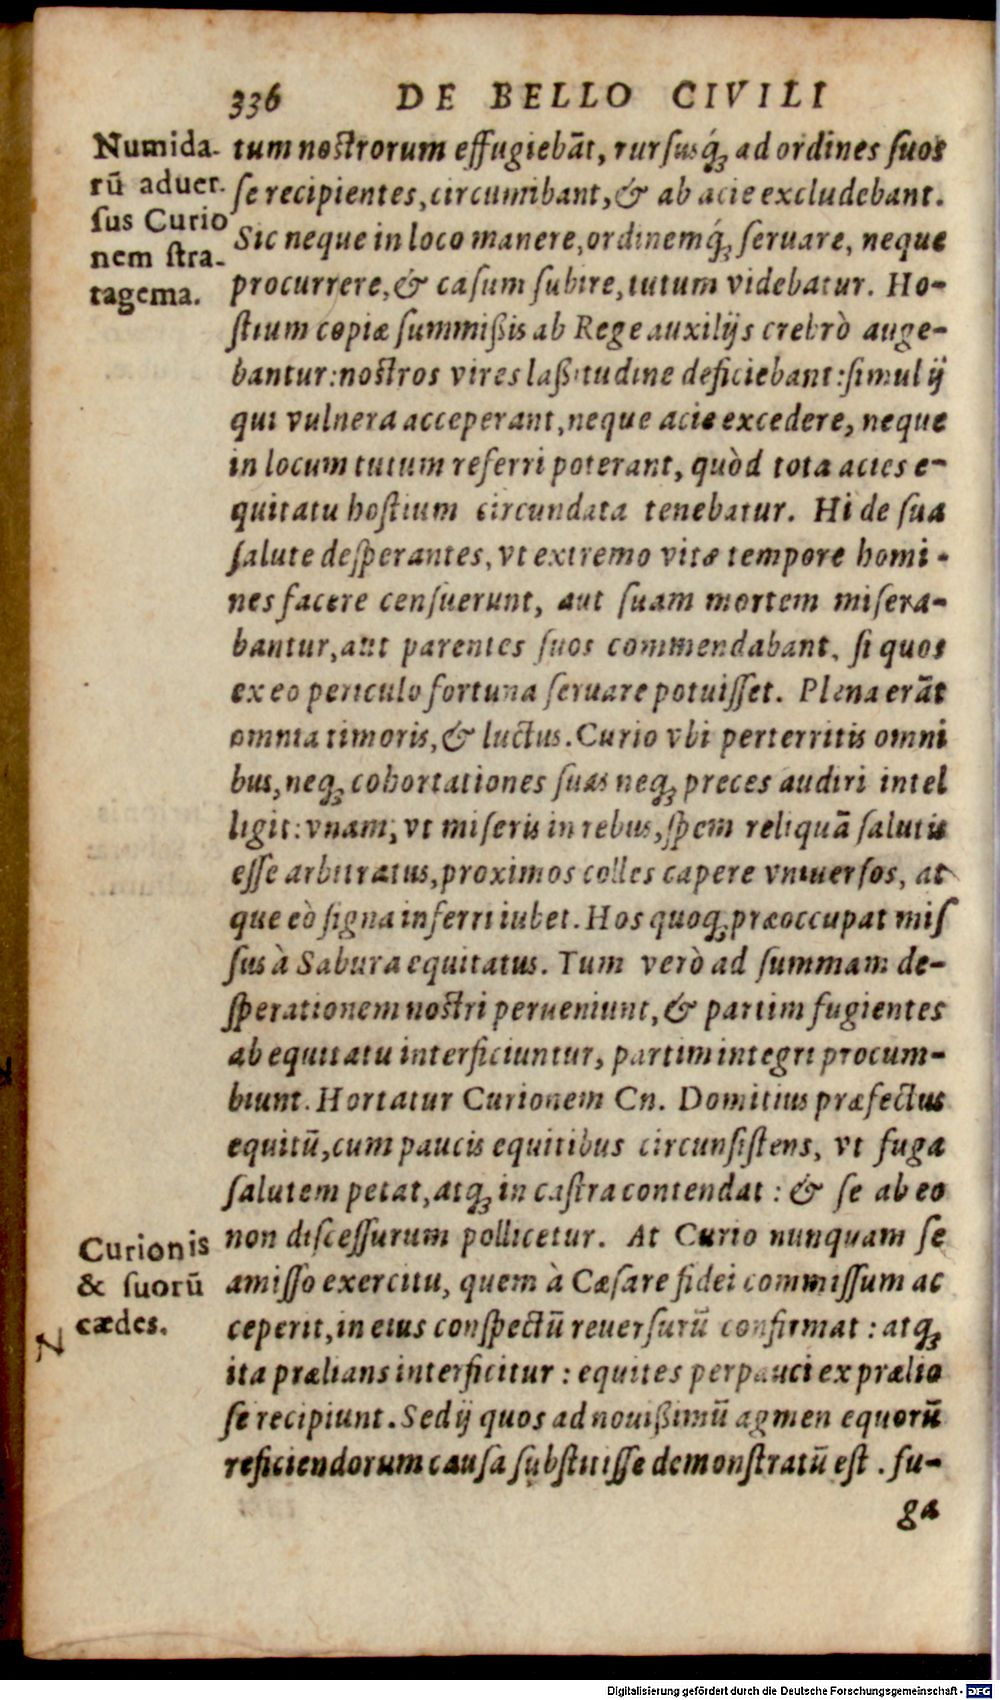 336 DE BELLO CIVILI
Numida-
rū aduer-
sus Curio
nem stra-
tagema.
tum nostrorum effugiebāt, rursusq́; ad ordines suos
se recipientes, circumibant, & ab acie excludebant.
Sic neque in loco manere, ordinemq́; seruare, neque
procurrere, & casum subire, tutum videbatur. Ho-
stium copiæ summißis ab Rege auxilijs crebrò auge-
bantur: nostros vires laßitudine deficiebant: simul ij
qui vulnera acceperant, neque acie excedere, neque
in locum tutum referri poterant, quòd tota acies e-
quitatu hostium circundata tenebatur. Hi de sua
salute desperantes, vt extremo vitæ tempore homi-
nes facere censuerunt, aut suam mortem misera-
bantur, aut parentes suos commendabant, si quos
ex eo periculo fortuna seruare potuisset. Plena erāt
omnia timoris, & luctus. Curio vbi perterritis omni
bus, neq; cohortationes suas neq; preces audiri intel
ligit: vnam, vt miseris in rebus, spem reliquā salutis
esse arbitratus, proximos colles capere vniuersos, at
que eò signa inferri iubet. Hos quoq; præoccupat mis
sus à Sabura equitatus. Tum verò ad summam de-
sperationem nostri perueniunt, & partim fugientes
ab equitatu interficiuntur, partim integri procum-
biunt. Hortatur Curionem Cn. Domitius præfectus
equitū, cum paucis equitibus circunsistens, vt fuga
salutem petat, atq; in castra contendat: & se ab eo
non discessurum pollicetur. At Curio nunquam se
amisso exercitu, quem à Cæsare fidei commissum ac
ceperit, in eius conspectū reuersurū confirmat: atq;
ita prælians interficitur: equites perpauci ex prælio
se recipiunt. Sed ij quos ad nouißimū agmen equorū
reficiendorum causa substitisse demonstratū est. fu-
Curionis
& suorū
cædes.
N
ga
Digitalisierung gefördert durch die Deutsche Forschungsgemeinschaft - DFG